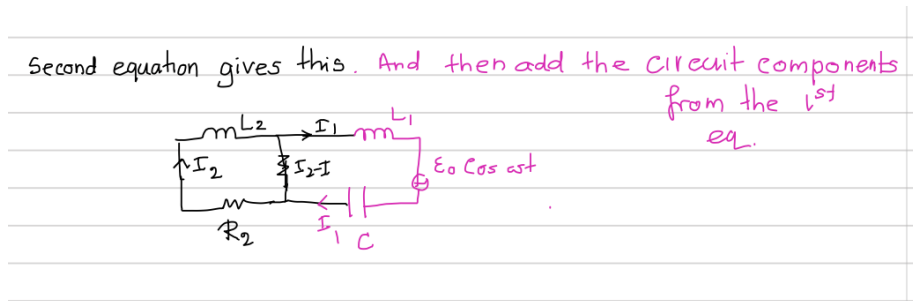 Second equation gives this. And then add the circuit components
from the 1st
eq.
L2 I1 L1
I2 I2-I ε0 Cos ωt
R2 I1 C